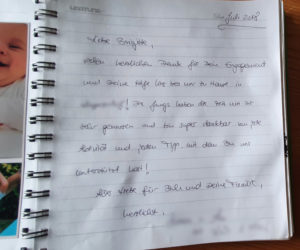 Juli 2018
Liebe Brigitte,
vielen herzlichen Dank für Dein Engagement
und Deine Hilfe bei uns zu Hause in
! Die Jungs haben die Zeit mit dir
sehr genossen und sind super dankbar um jede
und jeden Tipp mit dem Du uns
unterstützt hast!
Alles Liebe für Dich und Deine Familie,
herzlichst,